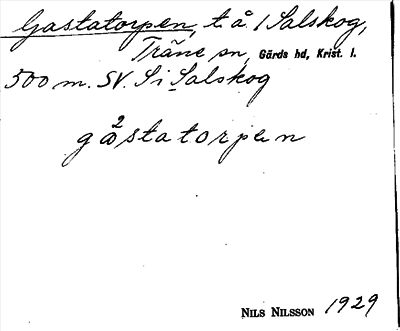 Gastatorpen, t å 1 Salskog,
Träne sn, Gärds hd, Krist. l.
500 m. SV. S i Salskog
gå²statorpen
NILS NILSSON 1929